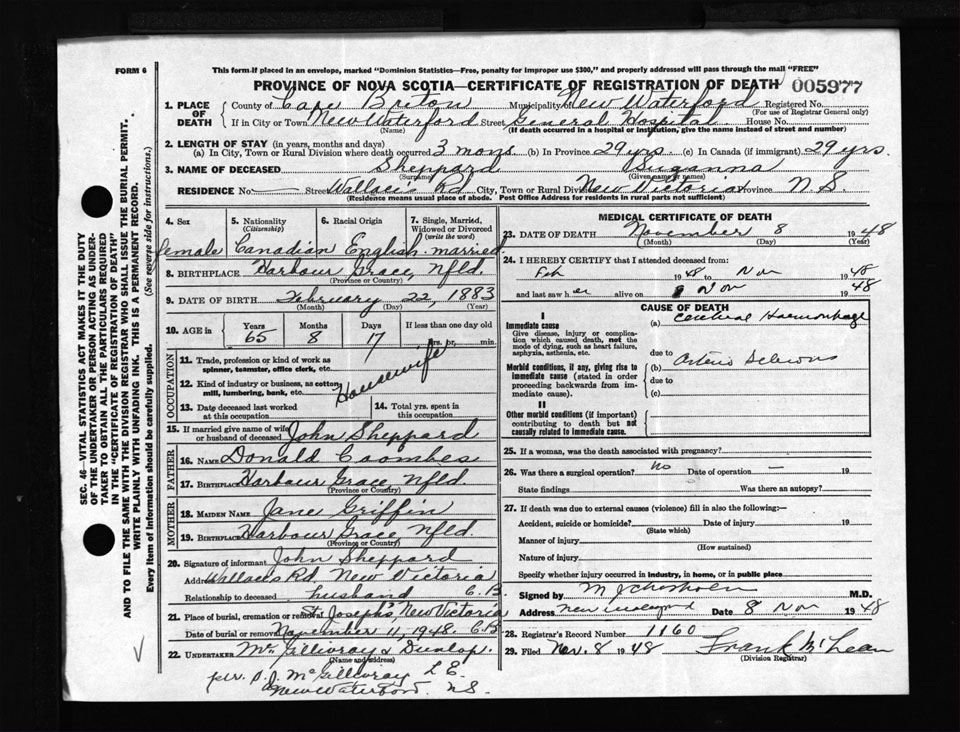 FORM 6
This form if placed in an envelope, marked "Dominion Statistics—Free, penalty for improper use $300," and properly addressed will pass through the mail "FREE"
PROVINCE OF NOVA SCOTIA—CERTIFICATE OF REGISTRATION OF DEATH 005977
1. PLACE OF DEATH
County of Cape Briton Municipality of New Waterford Registered No.
(For use of Registrar General only)
If in City or Town New Waterford Street General Hospital House No.
(Name) (If death occurred in a hospital or institution, give the name instead of street and number)
2. LENGTH OF STAY (in years, months and days)
(a) In City, Town or Rural Division where death occurred 3 mons. (b) In Province 29 yrs. (c) In Canada (if immigrant) 29 yrs.
3. NAME OF DECEASED Sheppard Suzanna
(Surname) (Given name or names)
RESIDENCE No. Street Wallacis Rd City, Town or Rural Division New Victoria Province N.S.
(Residence means usual place of abode. Post Office Address for residents in rural parts not sufficient)
4. Sex 5. Nationality 6. Racial Origin 7. Single, Married, Widowed or Divorced
(Citizenship) (write the word)
female Canadian English married
8. BIRTHPLACE Harbour Grace, Nfld.
(Province or Country)
9. DATE OF BIRTH February 22, 1883
(Month) (Day) (Year)
10. AGE in Years Months Days If less than one day old
65 8 17 hrs. or min.
OCCUPATION
11. Trade, profession or kind of work as spinner, teamster, office clerk, etc.
Housewife
12. Kind of industry or business, as cotton mill, lumbering, bank, etc.
13. Date deceased last worked at this occupation
14. Total yrs. spent in this occupation
15. If married give name of wife or husband of deceased John Sheppard
FATHER
16. NAME Donald Coombes
17. BIRTHPLACE Harbour Grace, Nfld.
(Province or Country)
MOTHER
18. MAIDEN NAME Jane Griffin
19. BIRTHPLACE Harbour Grace, Nfld.
(Province or Country)
20. Signature of informant John Sheppard
Address Wallacis Rd. New Victoria
Relationship to deceased husband C.B.
21. Place of burial, cremation or removal St. Joseph's, New Victoria
Date of burial or removal November 11, 1948. C.B.
22. UNDERTAKER McGillivray & Dunlop.
(Name and address)
per. McGillivray L.E.
New Waterford. N.S.
MEDICAL CERTIFICATE OF DEATH
23. DATE OF DEATH November 8 1948
(Month) (Day) (Year)
24. I HEREBY CERTIFY that I attended deceased from:
Feb 1948 to Nov 1948
and last saw her alive on 8 Nov 1948
CAUSE OF DEATH
I
Immediate cause
Give disease, injury or complication which caused death, not the mode of dying, such as heart failure, asphyxia, asthenia, etc.
(a) Cerebral Haemorrhage
due to
Morbid conditions, if any, giving rise to immediate cause (stated in order proceeding backwards from immediate cause).
(b) Arterio Sclerosis
due to
(c)
II
Other morbid conditions (if important) contributing to death but not causally related to immediate cause.
25. If a woman, was the death associated with pregnancy?
26. Was there a surgical operation? No Date of operation — 19
State findings Was there an autopsy?
27. If death was due to external causes (violence) fill in also the following:—
Accident, suicide or homicide? Date of injury 19
(State which)
Manner of injury
(How sustained)
Nature of injury
Specify whether injury occurred in industry, in home, or in public place
Signed by M.D.
Address New Waterford Date 8 Nov 1948
28. Registrar's Record Number 1160
29. Filed Nov. 8 1948 Frank McLean
(Division Registrar)
SEC. 46—VITAL STATISTICS ACT MAKES IT THE DUTY
OF THE UNDERTAKER OR PERSON ACTING AS UNDERTAKER TO OBTAIN ALL THE PARTICULARS REQUIRED
IN THE "CERTIFICATE OF REGISTRATION OF DEATH"
AND TO FILE THE SAME WITH THE DIVISION REGISTRAR WHO SHALL ISSUE THE BURIAL PERMIT.
WRITE PLAINLY WITH UNFADING INK. THIS IS A PERMANENT RECORD.
Every item of information should be carefully supplied. (See reverse side for instructions.)